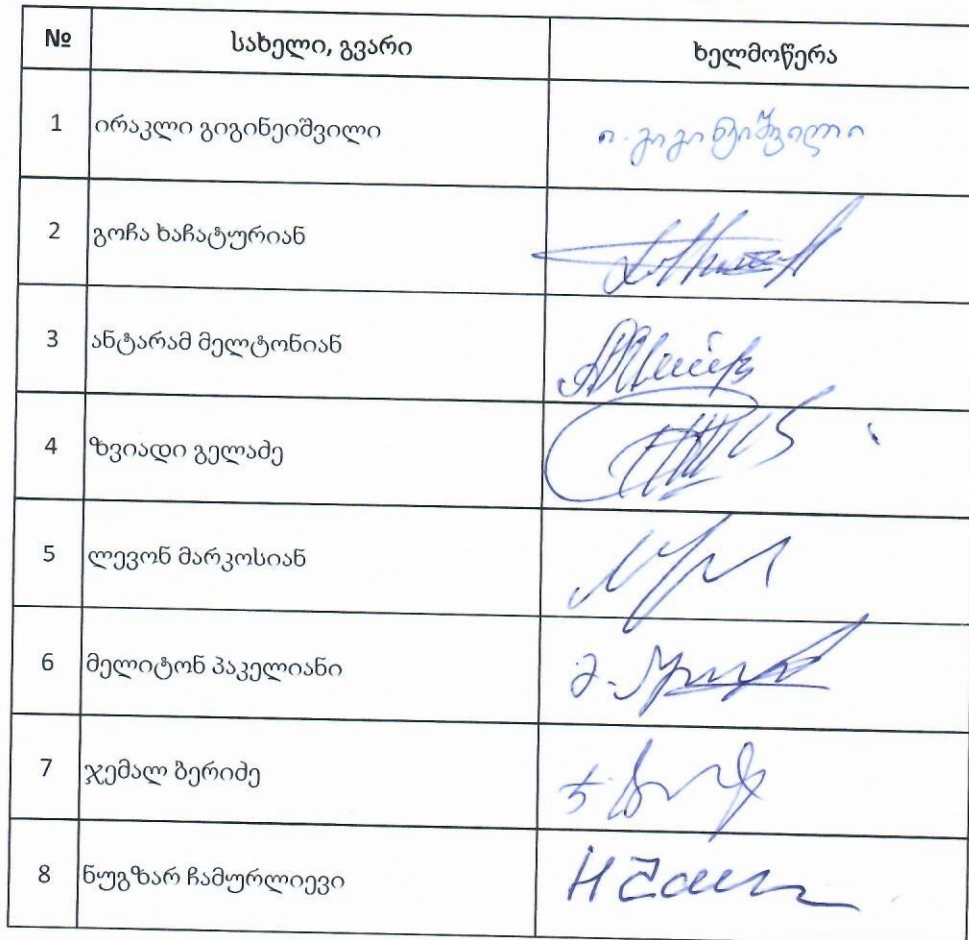 № სახელი, გვარი ხელმოწერა
1 ირაკლი გიგინეიშვილი ი. გიგინეიშვილი
2 გოჩა ხაჩატურიან
3 ანტარამ მელტონიან
4 ზვიადი გელაძე
5 ლევონ მარკოსიან
6 მელიტონ პაკელიანი
7 ჯემალ ბერიძე
8 ნუგზარ ჩამურლიევი